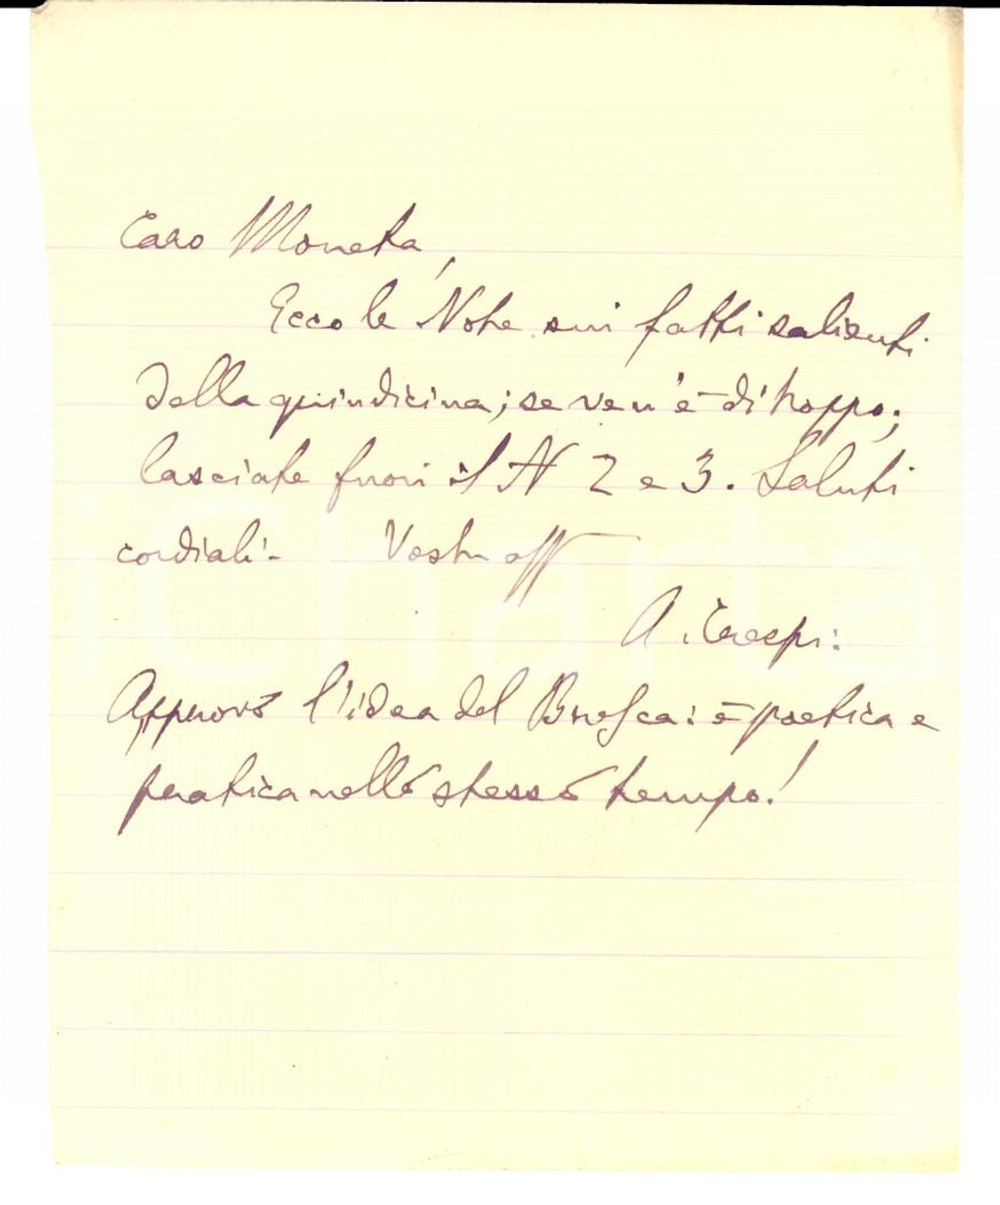 Caro Moneta,
Ecco le Note sui fatti salienti
della quindicina; se ve n'è di troppo;
lasciate fuori il N 2 e 3. Saluti
cordiali - Vostro aff
A. Crespi:
Approvo l'idea del : è poetica e
pratica nello stesso tempo!
iCharta